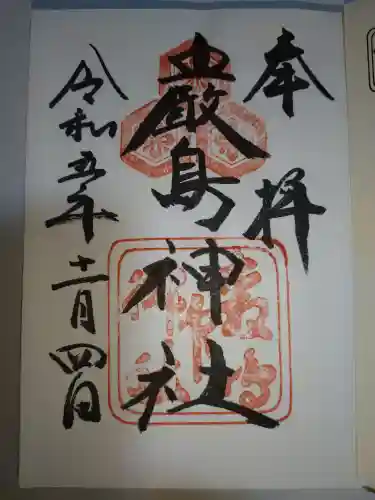 奉拝
厳島神社
令和五年十一月四日